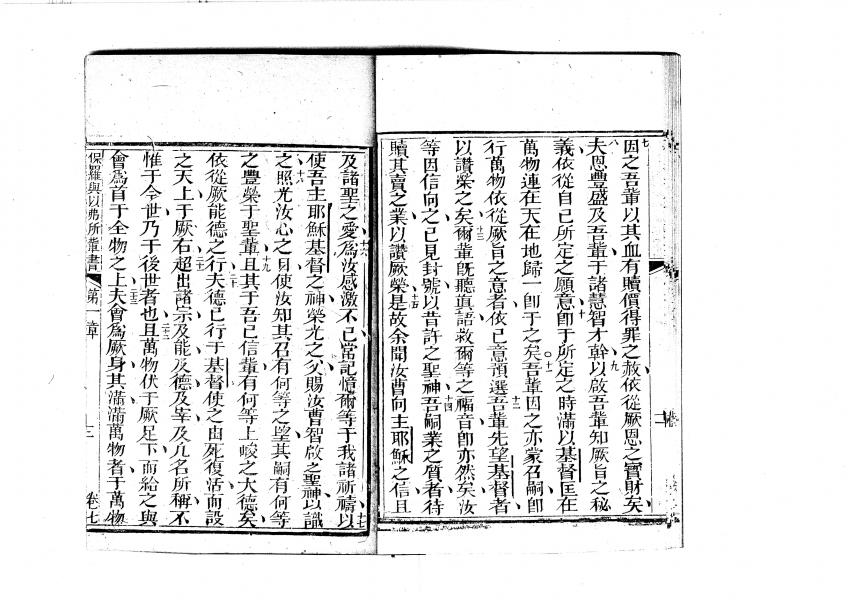 因之吾輩以其血有贖價得罪之赦依從厥恩之寶財矣
夫恩豐盛及吾輩于諸慧智才幹以啟吾輩知厥旨之秘
義依從自己所定之願意即于所定之時滿以基督匡在
萬物連在天在地歸一即于之矣吾輩因之亦蒙召嗣即
行萬物依從厥旨之意者依己意預選吾輩先望基督者
以讃榮之矣爾輩既聽真語救爾等之福音即亦然矣汝
等因信向之已見封號以昔許之聖神吾嗣業之質者待
贖其賣之業以讃厥榮是故余聞汝曹向主耶穌之信且
及諸聖之愛為汝感激不已當記憶爾等于我諸祈禱以
使吾主耶穌基督之神榮光之父賜汝曹智啟之聖神以識
之照光汝心之目使汝知其召有何等之望其嗣有何等
之豐榮于聖輩且其于吾已信輩有何等上峻之大德矣
依從厥能德之行夫德已行于基督使之由死復活而設
之天上于厥右超出諸宗及能及德及宰及凡名所稱不
惟于今世乃于後世者也且萬物伏于厥足下而給之與
會為首于全物之上夫會為厥身其滿滿萬物者于萬物
保羅與以弗所輩書 第一章 三 卷七